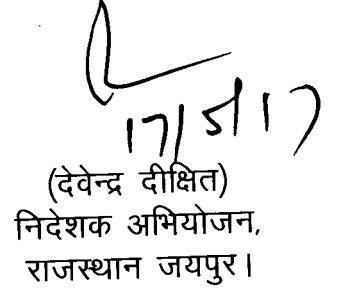 (देवेन्द्र दीक्षित)
निदेशक अभियोजन,
राजस्थान जयपुर।